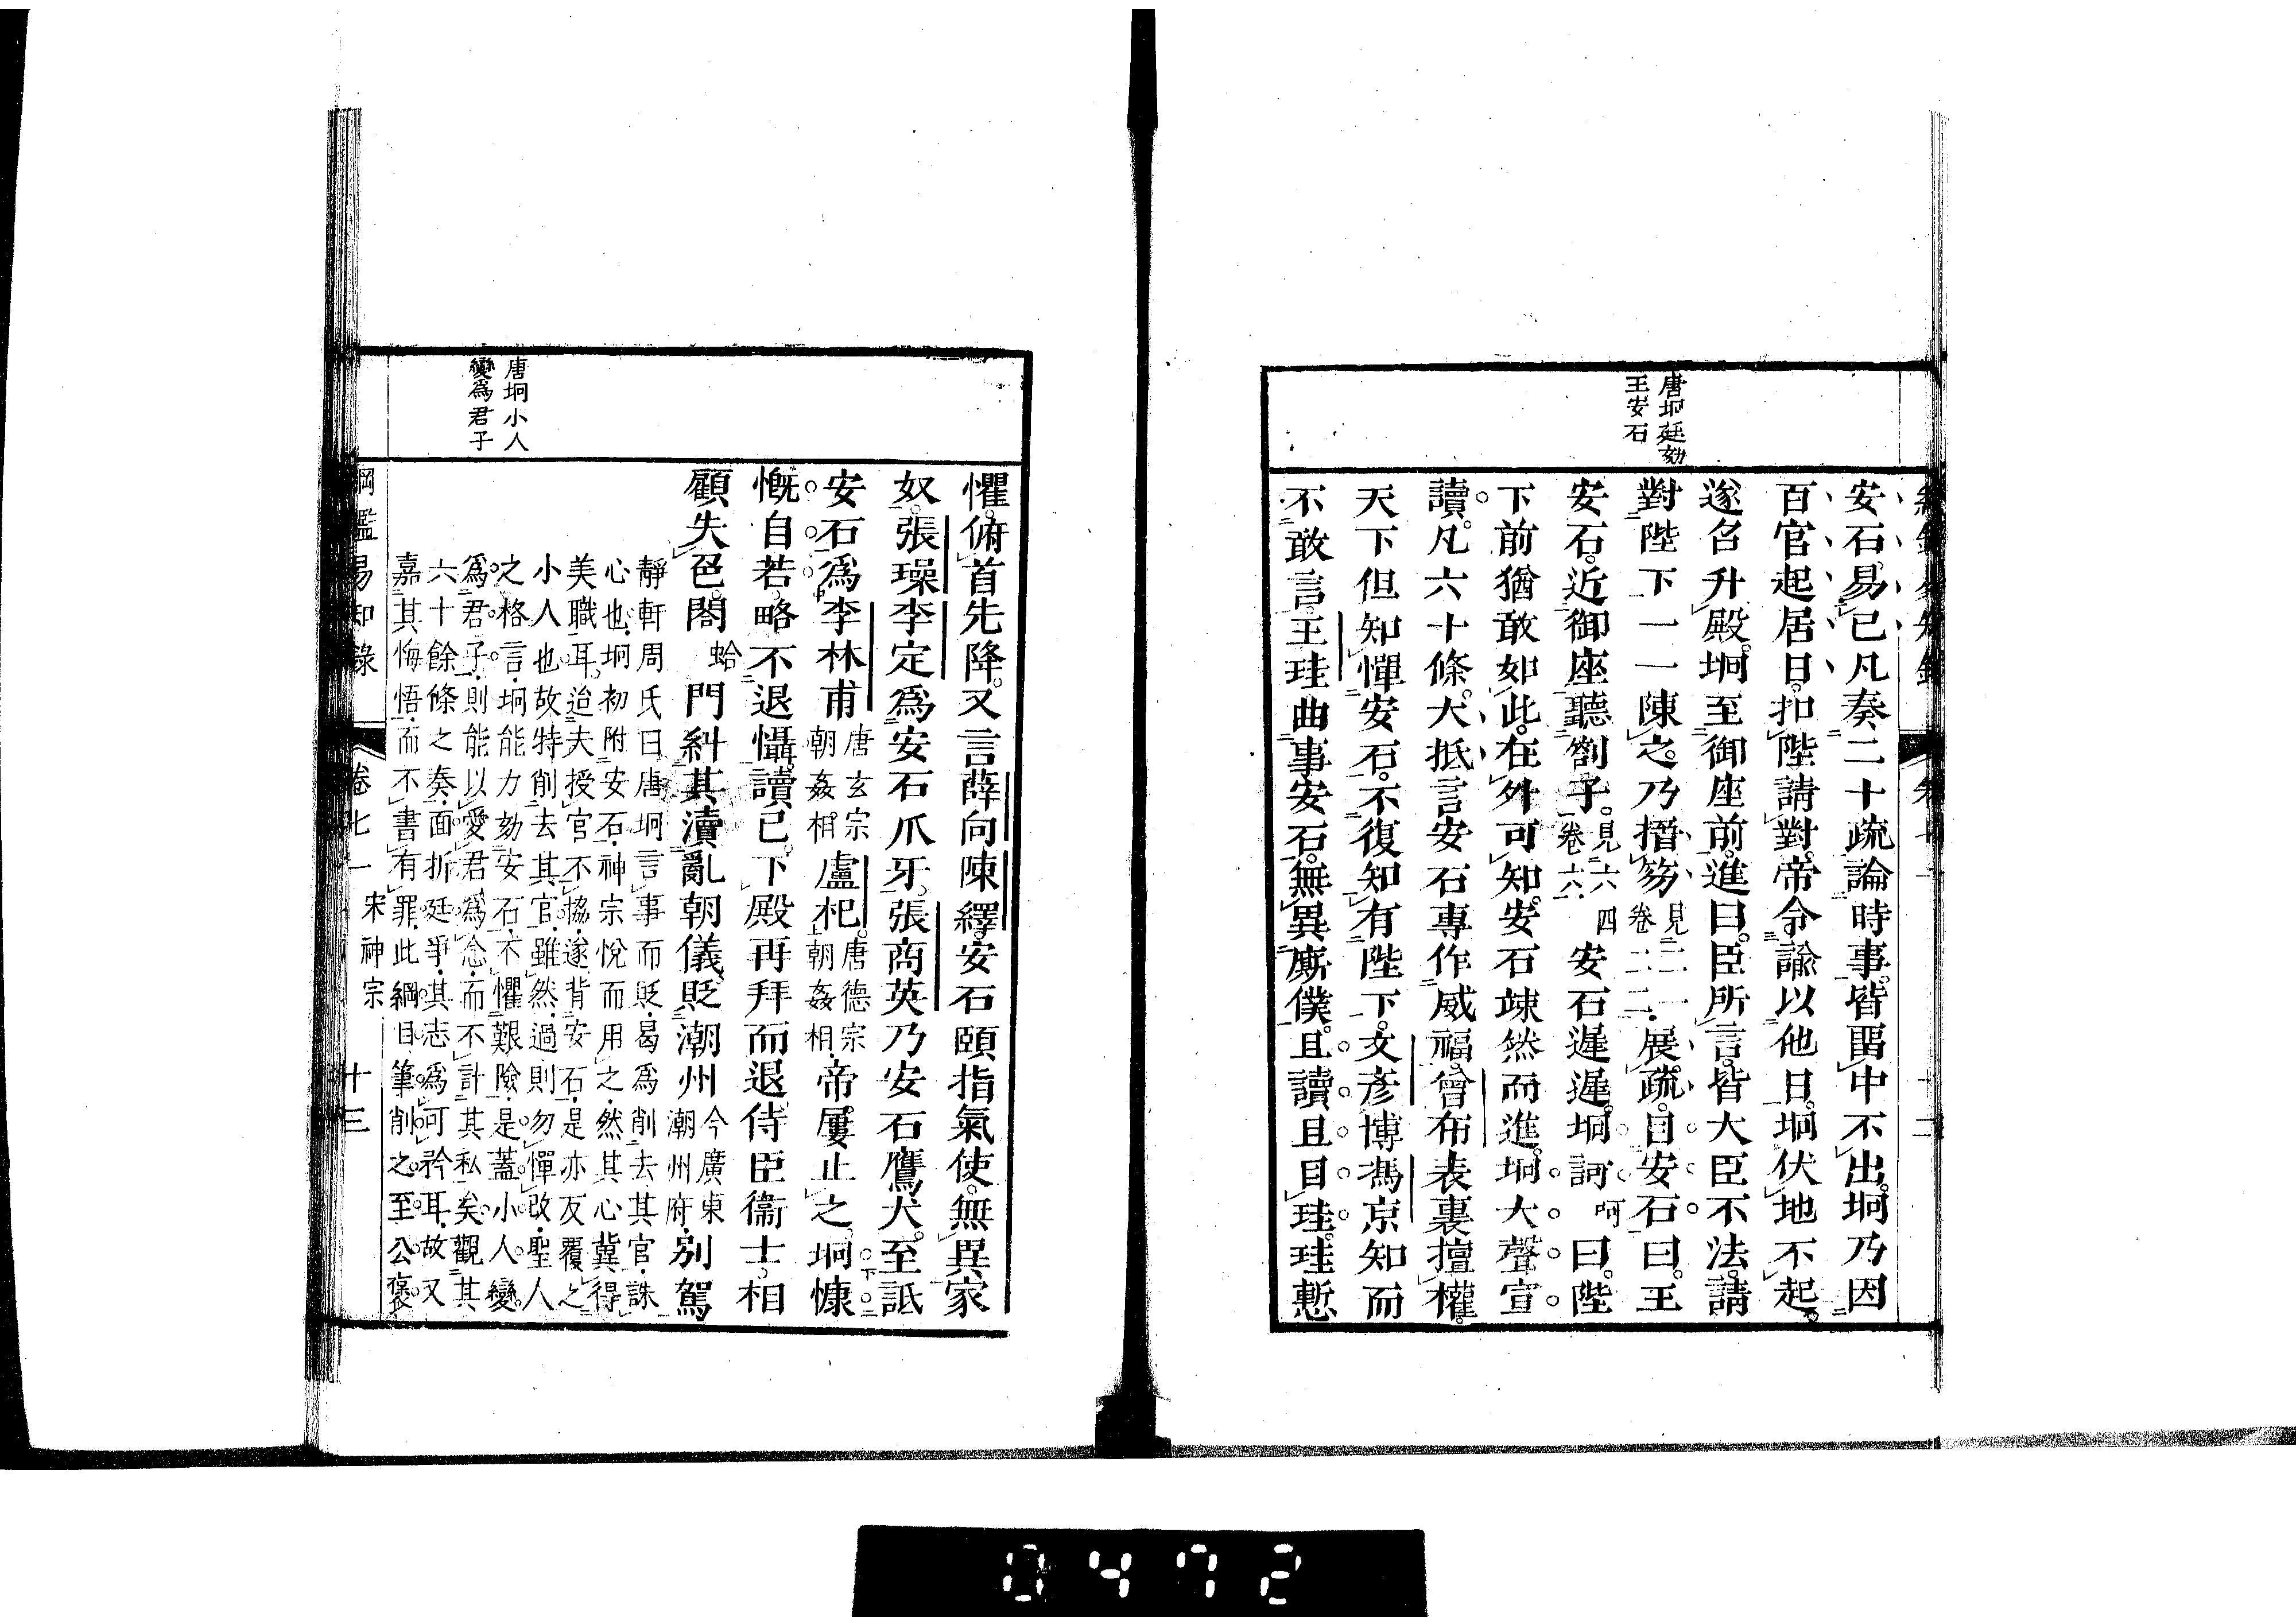 唐坰廷劾
王安石
安石易已凡奏二十疏論時事。皆留中不出。坰乃因
百官起居日。扣陛請對。帝令諭以他日。坰伏地不起。
遂召升殿。坰至御座前。進曰。臣所言。皆大臣不法。請
對陛下一一陳之。乃搢笏見二一卷二二展疏。目安石曰。王
安石。近御座聽劄子。見六四卷六六安石遲遲。坰訶呵曰。陛
下前猶敢如此。在外可知。安石竦然而進。坰大聲宣
讀。凡六十條。大抵言安石專作威福。曾布表裏擅權。
天下但知憚安石。不復知有陛下。文彥博馮京知而
不敢言。王珪曲事安石。無異廝僕。且讀且目珪。珪慙
懼。俯首先降。又言薛向陳繹。安石頤指氣使。無異家
奴。張璪李定爲安石爪牙。張商英乃安石鷹犬。至詆
安石爲李林甫唐玄宗朝姦相。盧杞。唐德宗朝姦相。帝屢止之。坰慷
慨自若。略不退懾。讀已。下殿再拜而退。侍臣衞士。相
顧失色。閤蛤門糾其瀆亂朝儀。貶潮州今廣東潮州府。別駕
唐坰小人
變爲君子
靜軒周氏曰唐坰言事而貶。曷爲削去其官。誅
心也。坰初附安石。神宗悅而用之。然其心冀得
美職耳。迨夫授官不協。遂背安石。是亦反覆之
小人也故特削去其官。雖然。過則勿憚改。聖人
之格言。坰能力劾安石。不懼艱險。是蓋小人變
爲君子。則能以愛君爲念。而不計其私矣。觀其
六十餘條之奏。面折廷爭。其志爲可矜耳。故又
嘉其悔悟。而不書有罪。此綱目筆削之至公褒
綱鑑易知錄 卷七一 宋神宗 十三